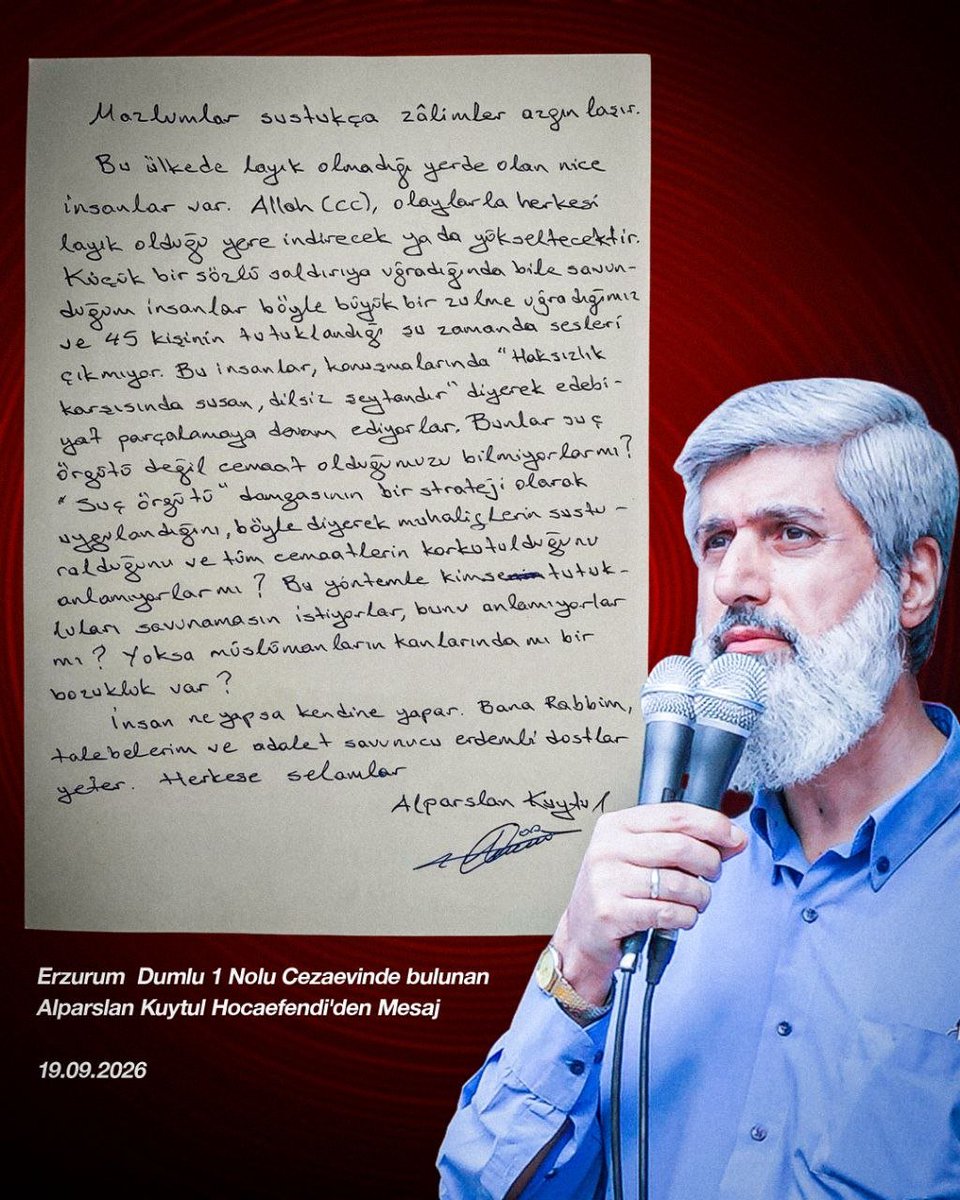 Mazlumlar sustukça zâlimler azgınlaşır.
Bu ülkede layık olmadığı yerde olan nice
insanlar var. Allah (cc), olaylarla herkesi
layık olduğu yere indirecek ya da yükseltecektir.
Küçük bir sözlü saldırıya uğradığında bile savun-
duğum insanlar böyle büyük bir zulme uğradığımız
ve 45 kişinin tutuklandığı şu zamanda sesleri
çıkmıyor. Bu insanlar, konuşmalarında "Haksızlık
karşısında susan, dilsiz şeytandır" diyerek edebi-
yat parçalamaya devam ediyorlar. Bunlar suç
örgütü değil cemaat olduğumuzu bilmiyorlar mı?
"Suç örgütü" damgasının bir strateji olarak
uygulandığını, böyle diyerek muhaliflerin sustu-
rulduğunu ve tüm cemaatlerin korkutulduğunu
anlamıyorlar mı? Bu yöntemle kimse tutuk-
luları savunamasın istiyorlar, bunu anlamıyorlar
mı? Yoksa müslümanların kanlarında mı bir
bozukluk var?
İnsan ne yapsa kendine yapar. Bana Rabbim,
talebelerim ve adalet savunucu erdemli dostlar
yeter. Herkese selamlar
Alparslan Kuytul
Erzurum Dumlu 1 Nolu Cezaevinde bulunan
Alparslan Kuytul Hocaefendi'den Mesaj
19.09.2026